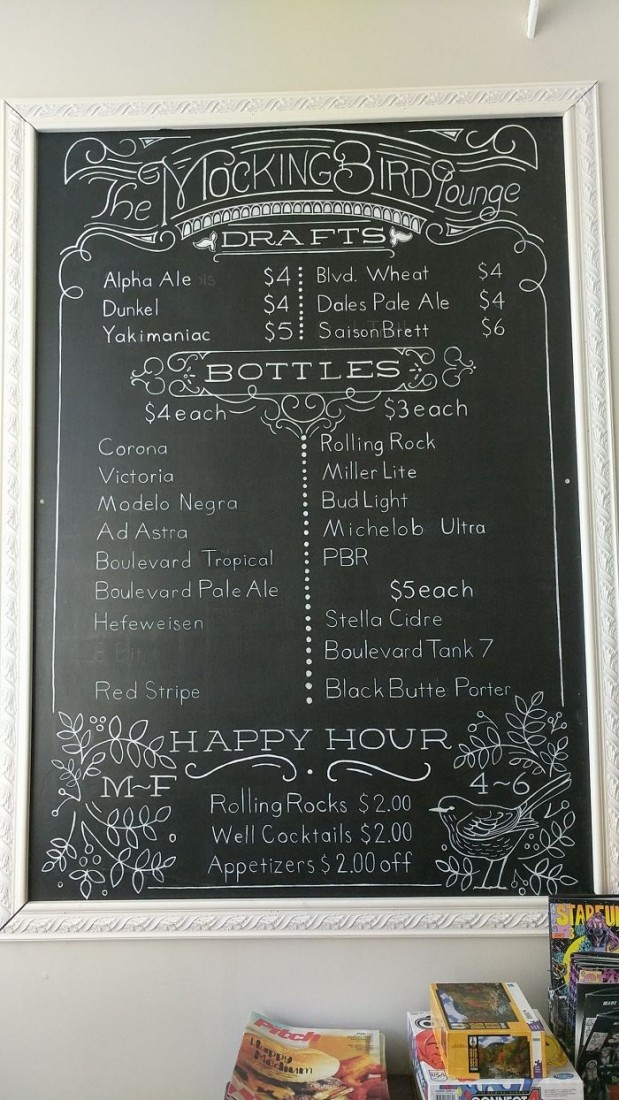 The MockingBird Lounge
DRAFTS
Alpha Ale $4
Dunkel $4
Yakimaniac $5
Blvd. Wheat $4
Dales Pale Ale $4
Saison Brett $6
BOTTLES
$4 each
Corona
Victoria
Modelo Negra
Ad Astra
Boulevard Tropical
Boulevard Pale Ale
Hefeweisen
Red Stripe
$3 each
Rolling Rock
Miller Lite
Bud Light
Michelob Ultra
PBR
$5 each
Stella Cidre
Boulevard Tank 7
Black Butte Porter
HAPPY HOUR
M~F
4~6
Rolling Rocks $2.00
Well Cocktails $2.00
Appetizers $2.00 off
Pitch
Happy
CONNECT 4